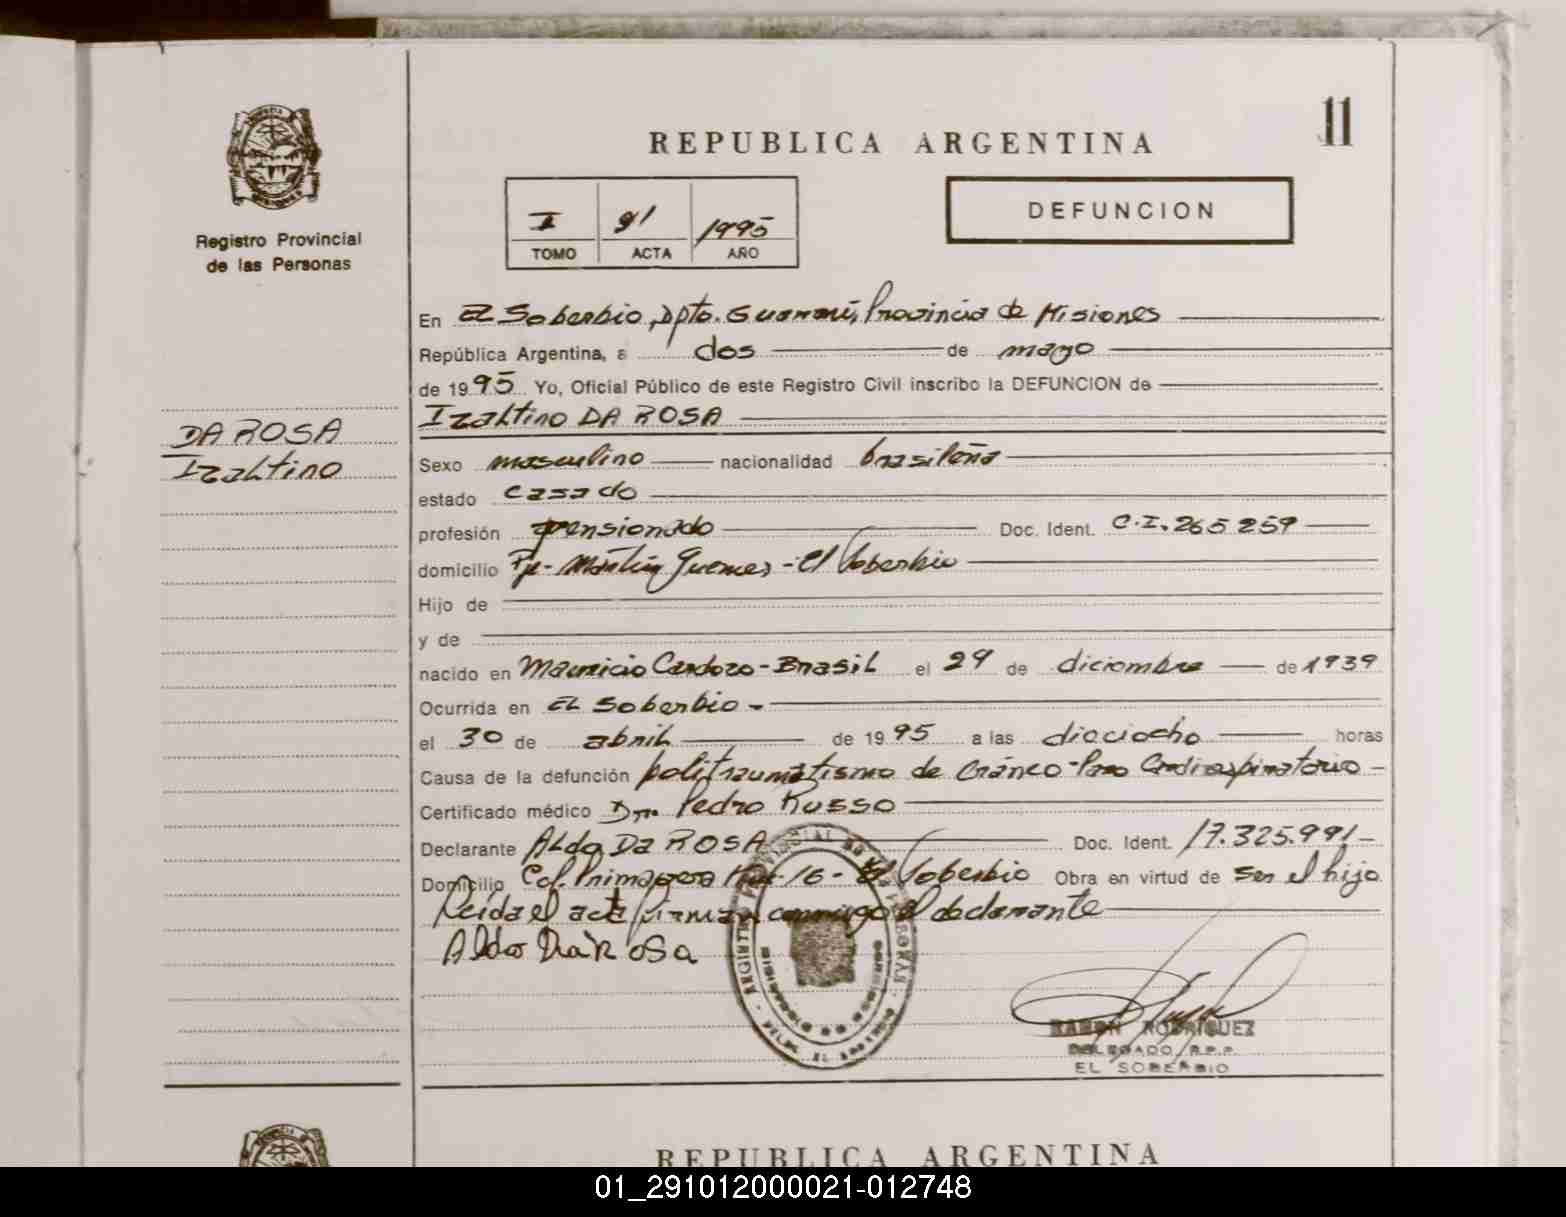 11
REPUBLICA ARGENTINA
DEFUNCION
I 91 1995
TOMO ACTA AÑO
Registro Provincial
de las Personas
DA ROSA
Izaltino
En El Soberbio, Dpto. Guaraní, Provincia de Misiones
República Argentina, a dos de mayo
de 1995 Yo, Oficial Público de este Registro Civil inscribo la DEFUNCION de
Izaltino DA ROSA
Sexo masculino nacionalidad brasileña
estado casado
profesión pensionado Doc. Ident. C.I. 265 259
domicilio Pje- Martín Guemes - El Soberbio
Hijo de
y de
nacido en Mauricio Cardozo - Brasil el 29 de diciembre de 1939
Ocurrida en El Soberbio -
el 30 de abril de 1995 a las dieciocho horas
Causa de la defunción politraumatismo de cráneo - Paro Cardiorespiratorio -
Certificado médico Dr. Pedro Russo
Declarante Aldo Da ROSA Doc. Ident. 17.325.991 -
Domicilio Col. Primavera Km. 16 - El Soberbio Obra en virtud de ser el hijo
Leída el acta firman conmigo el declarante
Aldo Da Rosa
RAMON RODRIGUEZ
DELEGADO R.P.P.
EL SOBERBIO
REPUBLICA ARGENTINA
01_291012000021-012748